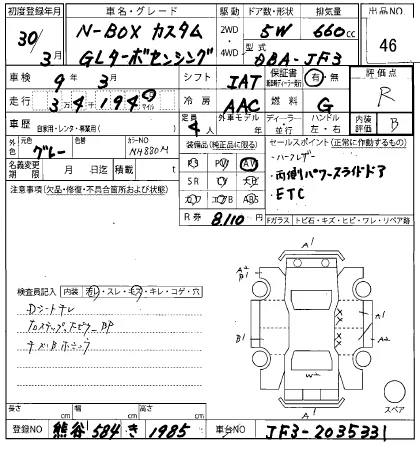 初度登録年月 車名・グレード 駆動 ドア数・形状 排気量 出品NO
30/3月 N-BOX カスタム GLターボセンシング 2WD 4WD 5W 660cc 46
型式 DBA-JF3
車検 9年3月 シフト IAT 保証書 有・無 評価点 R
走行 3万4千194 マイル 冷房 AAC 燃料 G
車歴 自家用・レンタ・事業用( ) 定員 4人 外車モデル ディーラー・並行 ハンドル 左・右 内装評価 B
外色 元色 グレー 色替 カラーNO NH880M
装備品(純正品に限る) セールスポイント(正常に作動するもの)
名義変更期限 月 日迄 積載 t
PS PW AW
SR TV ナビ
カワ エアB ABS
ハーフレザー
両側パワースライドドア
ETC
注意事項(欠品・修復・不具合箇所および状態)
R券 8,110
Fガラス トビ石・キズ・ヒビ・ワレ・リペア跡
検査員記入 内装 汚レ・スレ・キズ・キレ・コゲ・穴
Dシートチレ
チズB
A1
A2
B1
B1
A1
A2
W2
A1
スペア
長さ cm 幅 cm 高さ cm
登録NO 熊谷 584 き 1985 車台NO JF3-2035331